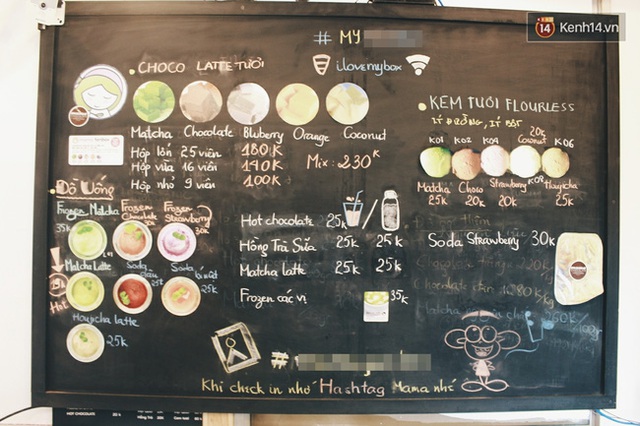 14 Kenh14.vn
# MY
ilovemybox
CHOCO LATTE TƯƠI
Matcha Chocolate Bluberry Orange Coconut
Hộp lớn 25 viên 180K
Hộp vừa 16 viên 140K
Hộp nhỏ 9 viên 100K
Mix: 230K
KEM TƯƠI FLOURLESS
ÍT ĐƯỜNG, ÍT BÉO
20k
K01 K02 K04 Coconut K06
Matcha Choco Strawberry K08 Haupicha
25k 20k 20k 25k
Đồ Uống
Frozen Matcha Frozen Chocolate Frozen Strawberry
35k 30k
Matcha Latte Soda dâu Soda
25k 25k
Hot
Houjicha latte
25k
Hot chocolate 25k
Hồng Trà Sữa 25k 25k
Matcha latte 25k 25k
Frozen các vị 35k
Soda Strawberry 30k
Chocolate
Chocolate 280k/kg
Matcha
#
Khi check in nhớ Hashtag Mama nhé
HOT CHOCOLATE